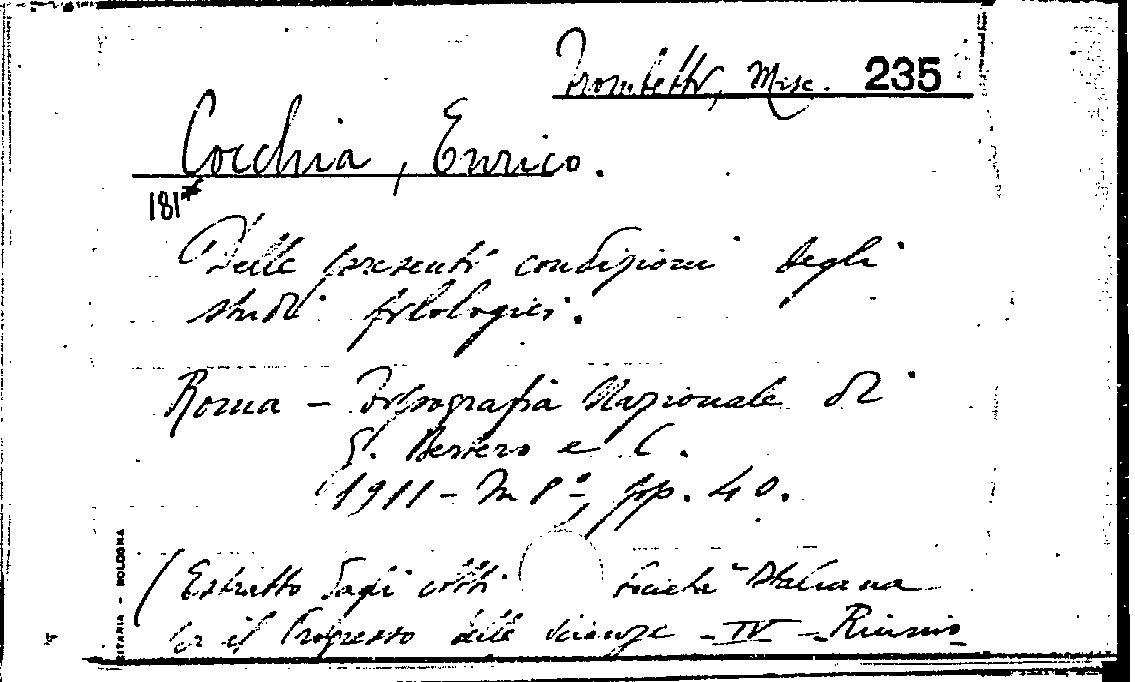 Trombetti, Misc. 235
Cocchia, Enrico.
181*
Delle presenti condizioni degli
studi filologici.
Roma - Tipografia Nazionale di
G. Bertero e C.
1911 - In 8º, pp. 40.
(Estratto dagli atti Società Italiana
per il Progresso delle Scienze - IV - Riunio
ITARIA - BOLOGNA